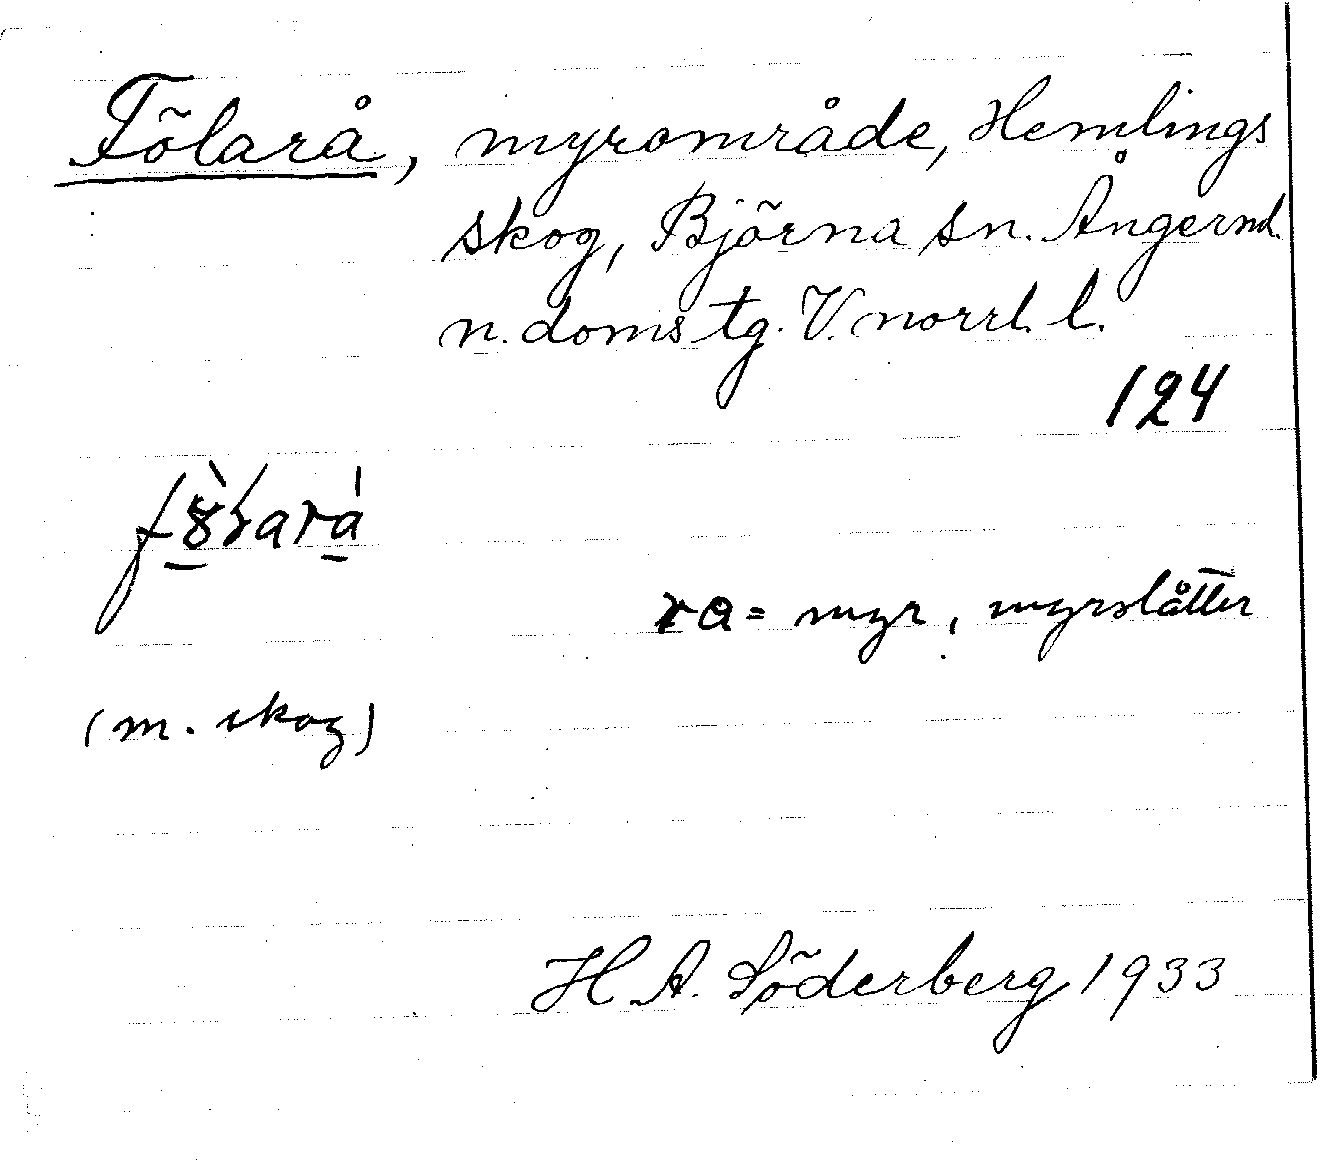 Fölarå, myrområde, Hemlings
skog, Björna sn. Ångermd.
n. doms tg. V. norrl. l.
124
ra = myr, myrslåtter
(m. skog)
H. A. Söderberg 1933